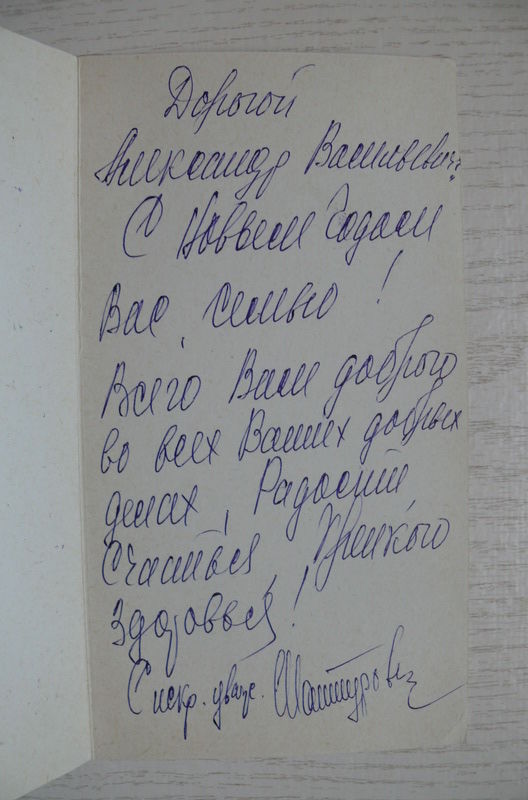 Дорогой
Александр Васильевич
С Новым Годом
Вас, семью!
Всего Вам доброго
во всех Ваших добрых
делах, Радостий,
Счастья, Крепкого
Здоровья!
С искр. уваж.